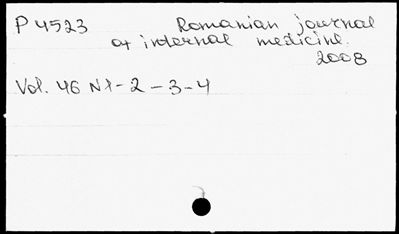 P 4523 Romanian journal
of internal medicine.
2008
Vol. 46 N1-2-3-4